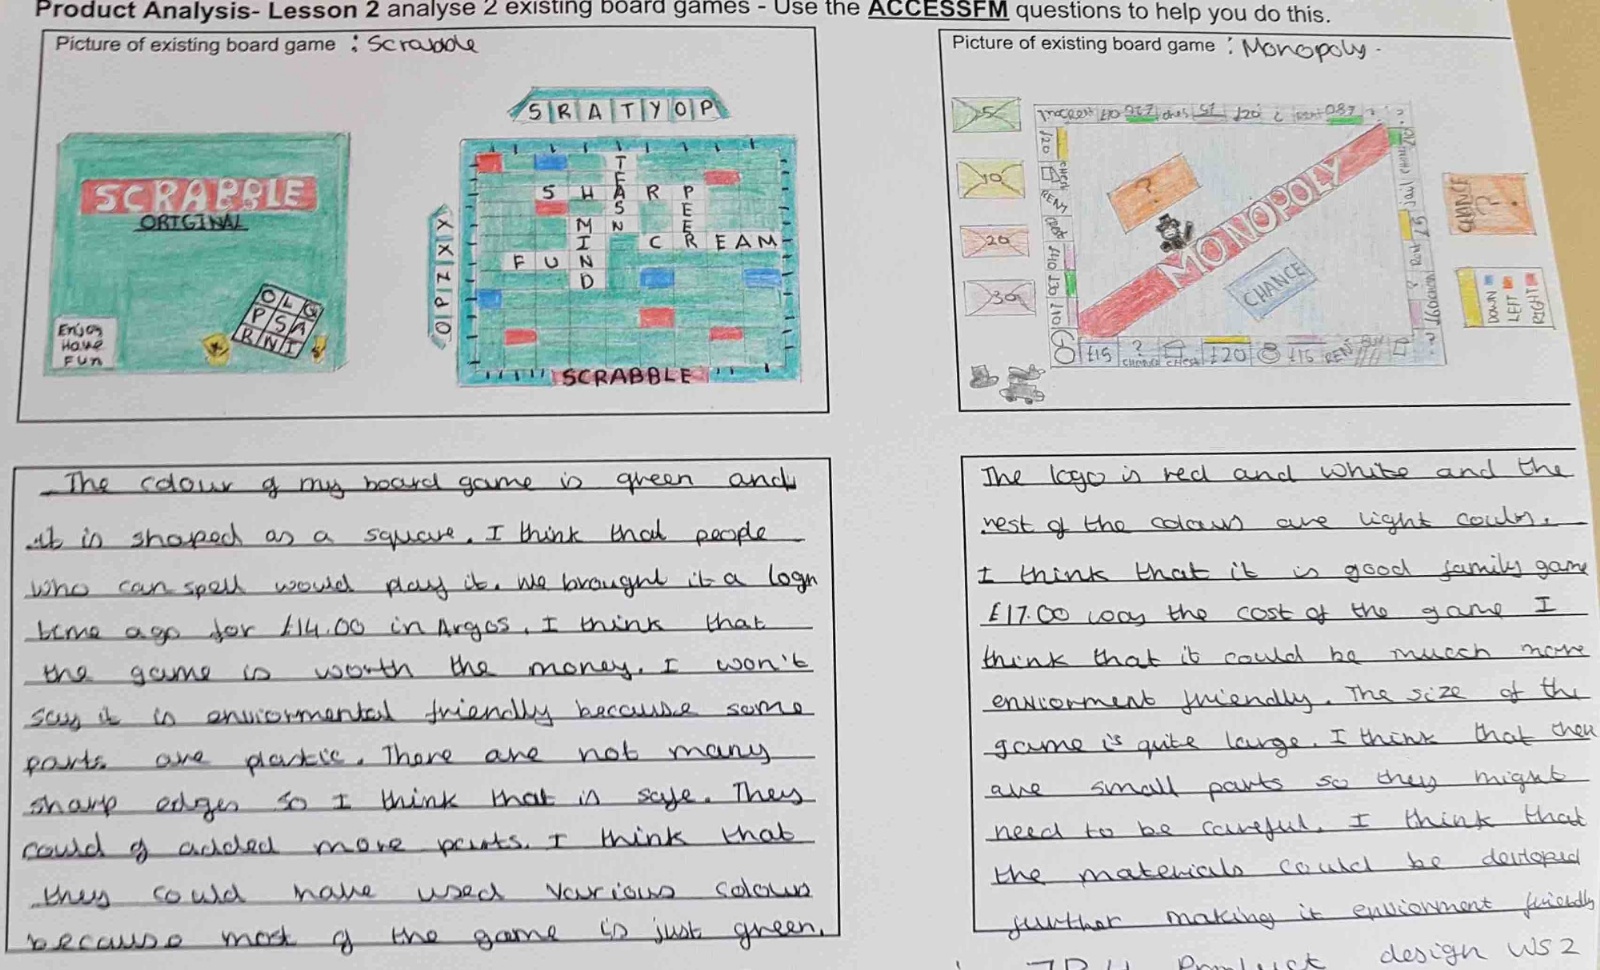 Product Analysis- Lesson 2 analyse 2 existing board games - Use the ACCESSFM questions to help you do this.
Picture of existing board game : Scrabble
SCRABBLE
ORIGINAL
Enjoy
Have
Fun
O L G
P S A
R N I
S R A T Y O P
X X Z P O
S H A R P
M I N D
F U N
C R E A M
SCRABBLE
The colour of my board game is green and
it is shaped as a square. I think that people
who can spell would play it. We brought it a logn
time ago for £14.00 in Argos. I think that
the game is worth the money. I won't
say it is enviormental friendly because some
parts are plastic. There are not many
sharp edges so I think that is safe. They
could of added more parts. I think that
they could have used various colours
because most of the game is just green.
Picture of existing board game : Monopoly.
5
10
20
30
MONOPOLY
?
CHANCE
GO
£15 ? £20 £15 RENT
CHANCE
?
DOWN
LEFT
RIGHT
The logo is red and white and the
rest of the colours are light coulrs.
I think that it is good family game
£17.00 was the cost of the game I
think that it could be mucch more
enviorment friendly. The size of the
game is quite large. I think that ther
are small parts so they might
need to be careful. I think that
the materials could be devloped
further making it enviorment friendly
Product design WS2